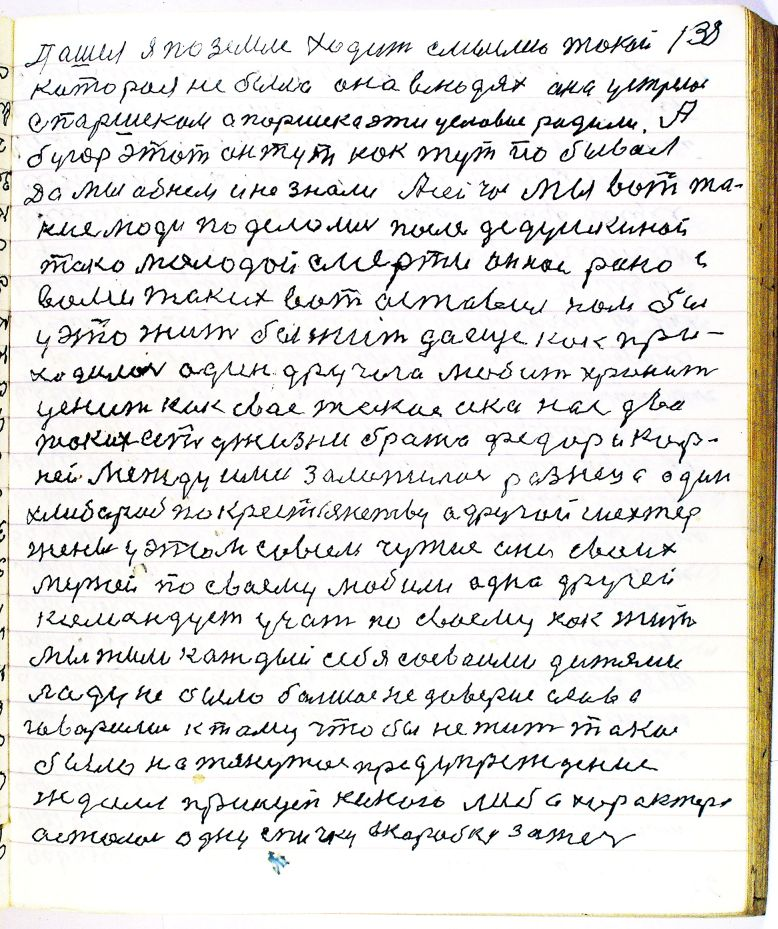 Пашел я по земле ходит смылию такой 138
которая не была она в людях она устрела
с паршеком а паршека эти условие радили. А
бугор этот он тут как тут по бывал
Да мы обнем и не знали А ей что мы вот та-
кие люди по делами после дедушкиной
тако молодой смерти он нас рано с
вами таких вот аставил нам бы
у это жит бы жит да еще как при-
ходилос один другога любит хранит
ценит как свае такое ика нас два
таких сети у жизни брата федор и кор-
ней между ими заложилас разнеца один
хлибароб по крестьянству а другой шахтер
жены у этом совсем чужие они своих
мужей по своему любили одна другей
командует учат по своему как жить
мы жыли каждый себя соеваими дитями
ладу не было болшое не доверие слава
говарили к таму что бы не жит такое
было натянутое предупреждение
ждали прикуп какого либа характера
астолос одну спичку в каробку зажеч